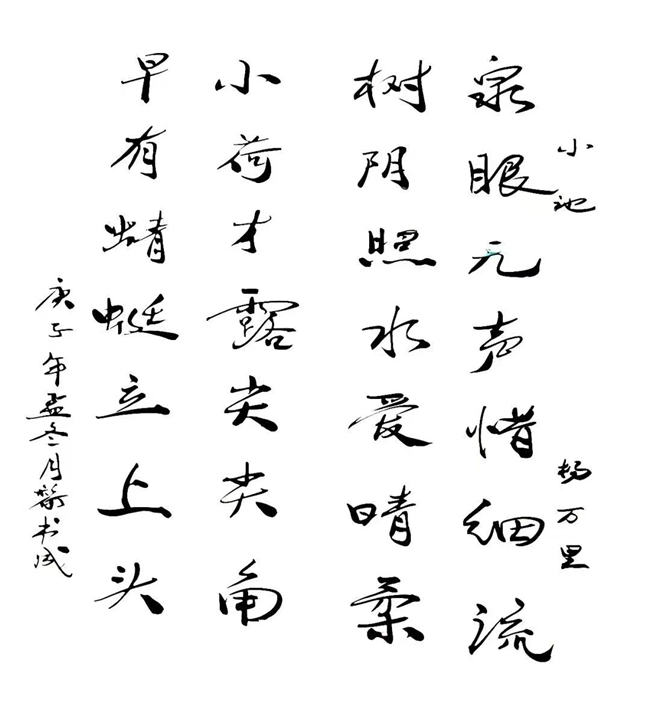 小池
杨万里
泉眼无声惜细流
树阴照水爱晴柔
小荷才露尖尖角
早有蜻蜓立上头
庚子年孟冬月 书成